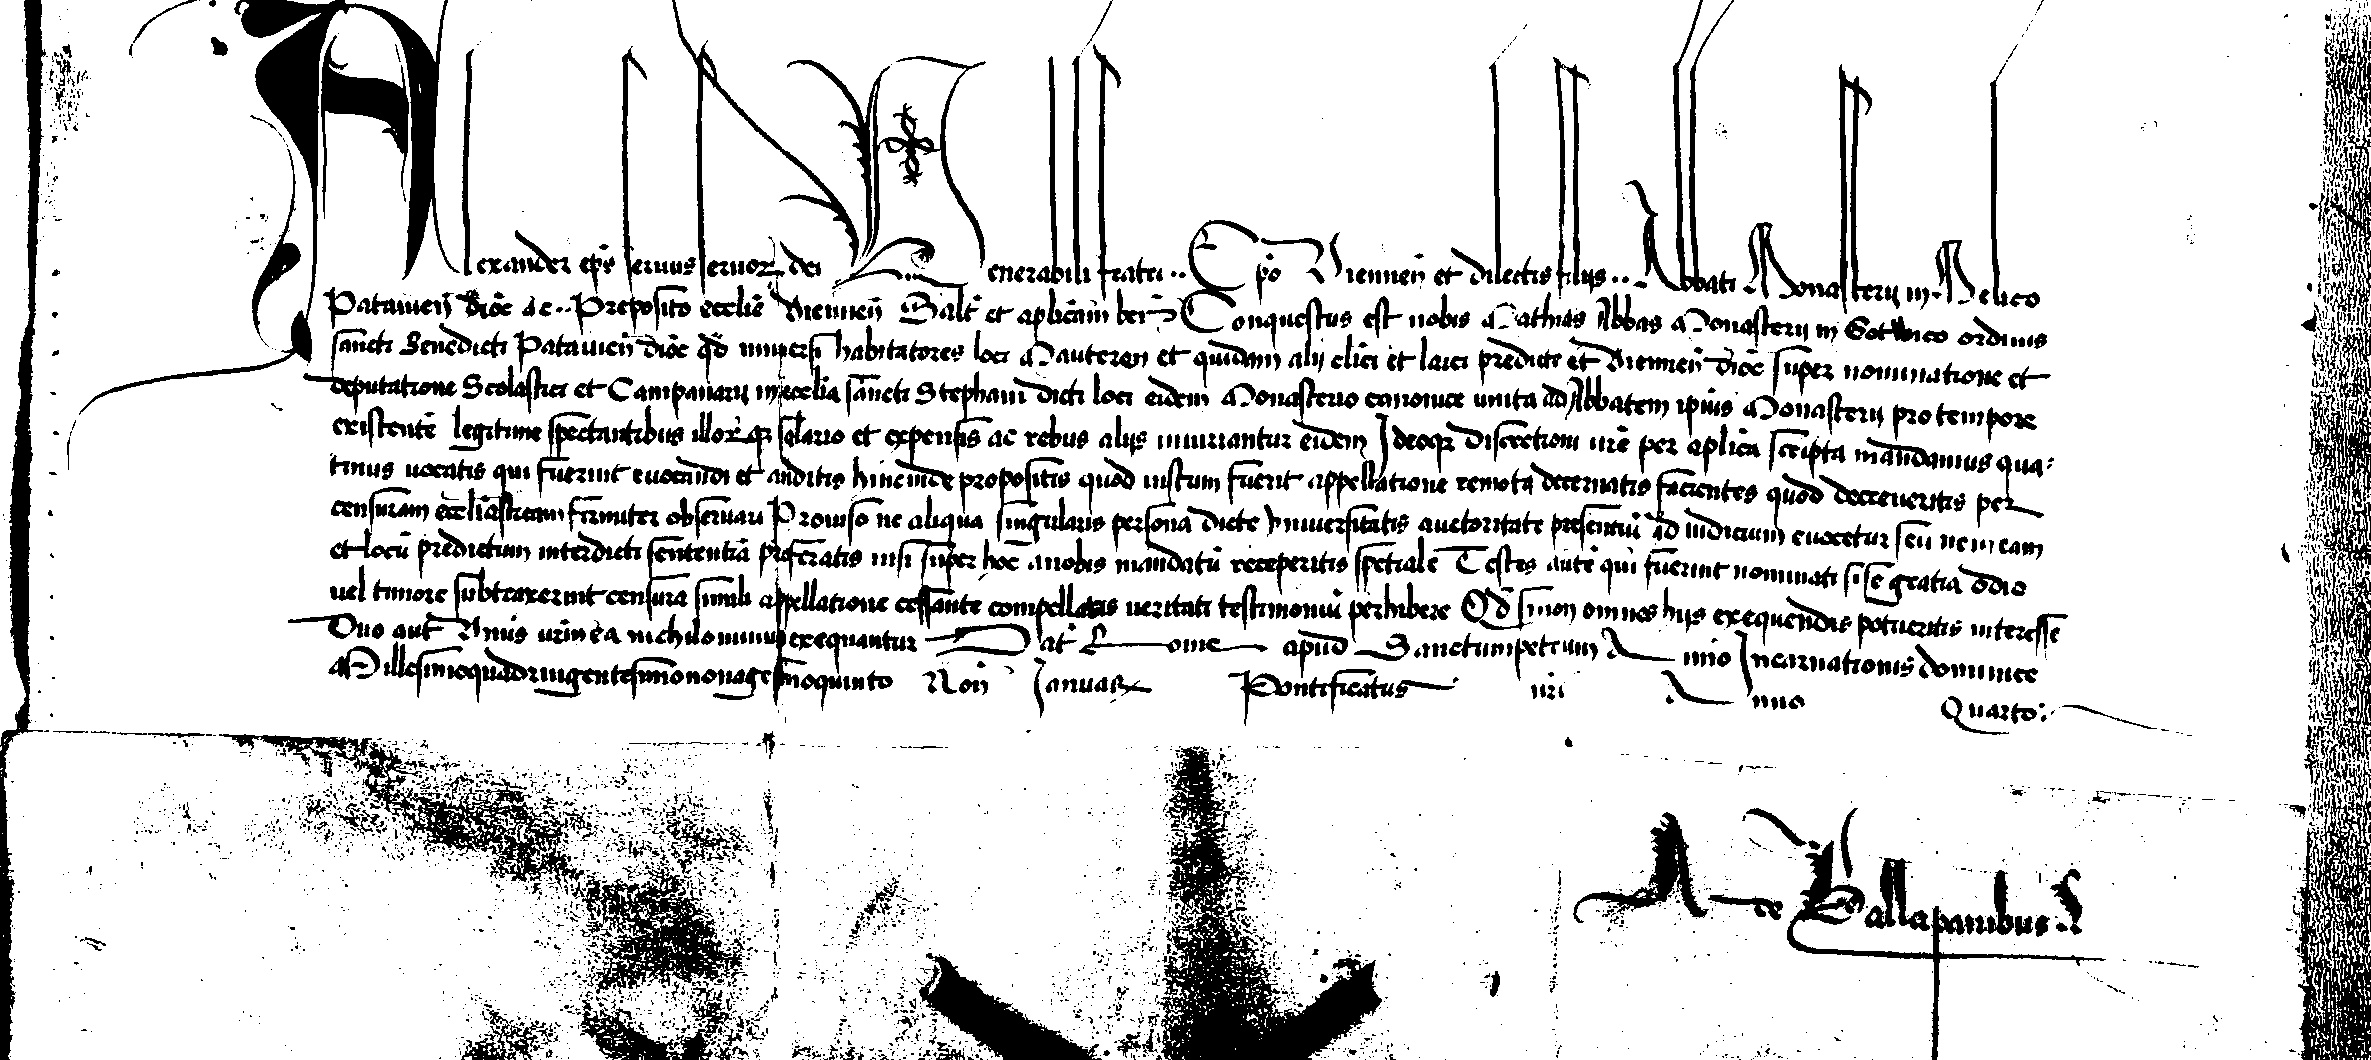 Alexander eps seruus seruoꝝ dei Venerabili fratri .. Epo Viennen̄ et dilectis filijs .. Abbati Monasterij in Melico
Patauien̄ dioc̄ ac .. Preposito ecclie Viennen̄ Salt̄ et aplicam ben̄ Conquestus est nobis Mathias Abbas Monasterij in Gotwico ordinis
sancti Benedicti Patauien̄ dioc̄ qd̄ uniuersi habitatores loci Mauteren et quidam alij clici et laici predicte et Viennen̄ dioc̄ super nominatione et
deputatione Scolastici et Campanarij in ecclia sancti Stephani dicti loci eidem Monasterio canonice unita ad Abbatem ipius Monasterij pro tempore
existente legitime spectantibus illoꝝqꝫ salario et expensis ac rebus alijs iniuriantur eidem Ideoqꝫ discretioni ur̄e per aplica scripta mandamus qua-
tinus uocatis qui fuerint euocandi et auditis hincinde propositis quod iustum fuerit appellatione remota decernatis facientes quod decreueritis per
censuram eccliasticam firmiter obseruari Prouiso ne aliqua singularis persona dicte Vniuersitatis auctoritate presentiū ad iudicium euocetur seu ne in eam
et locū predictum interdicti sententiā proferatis nisi super hoc anobis mandatū receperitis spetiale Testes autē qui fuerint nominati si se gratia odio
uel timore subtraxerint censura simili appellatione cessante compellatis ueritati testimoniū perhibere Qd̄ si non omnes hijs exequendis potueritis interesse
Duo aut Vnus ur̄m ea nichilominus exequantur Dat̄ Rome apud Sanctumpetrum Anno Incarnationis dominice
Millesimoquadringentesimononagesimoquinto Non̄ Januar̄ Pontificatus nr̄i Anno Quarto:
A de Vallaparibus.